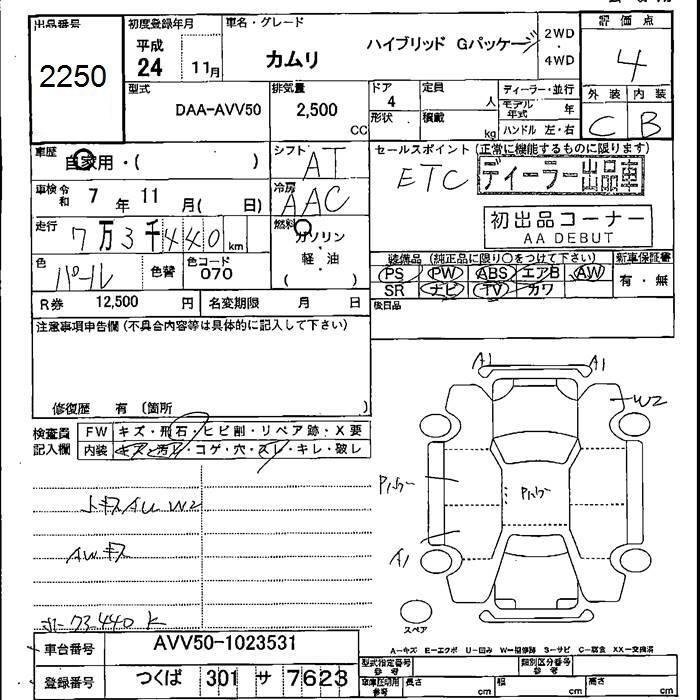 出品番号 初度登録年月 車名・グレード 評価点
2250 平成 24 11月 カムリ ハイブリッド Gパッケージ 2WD・4WD 4
型式 DAA-AVV50 排気量 2,500 CC ドア 4 形状 定員 人 積載 kg ディーラー・並行 モデル年式 年 ハンドル 左・右 外装 C 内装 B
車歴 自家用・( ) シフト AT セールスポイント (正常に機能するものに限ります)
ETC ディーラー出品車
車検 令和 7年 11月( 日) 冷房 AAC 初出品コーナー
AA DEBUT
走行 7万3千440km 燃料 ガソリン・軽・油 ( )
色 パール 色替 色コード 070 装備品 (純正品に限り○をつけて下さい) 新車保証書
PS PW ABS エアB AW 有・無
SR ナビ TV カワ
R券 12,500 円 名変期限 月 日 後日品
注意事項申告欄 (不具合内容等は具体的に記入して下さい)
修復歴 有 (箇所 )
A1 A1
W2
検査員 FW キズ・飛石・ヒビ割・リペア跡・X要
記入欄 内装 キズ・汚レ・コゲ・穴・スレ・キレ・破レ
AU W2
AWキズ
A1
73440K
スペア
A-キズ E-エクボ U-凹み W-補修跡 S-サビ C-腐食 XX-交換済
車台番号 AVV50-1023531
登録番号 つくば 301 サ 7623
型式指定番号 参考 類別区分番号 参考
車庫証明用 参考 長さ cm 幅 cm 高さ cm